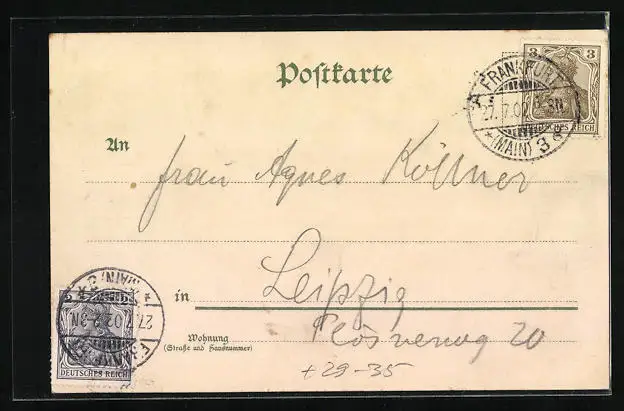 Postkarte
3 3
DEUTSCHES REICH
FRANKFURT
27.7.02. 2-3N
* (MAIN) 3 a
An Frau Agnes Köllner
in Leipzig
Wohnung
(Straße und Hausnummer)
20
+29-35
(MAIN)
27.7.02. 2-3N
DEUTSCHES REICH